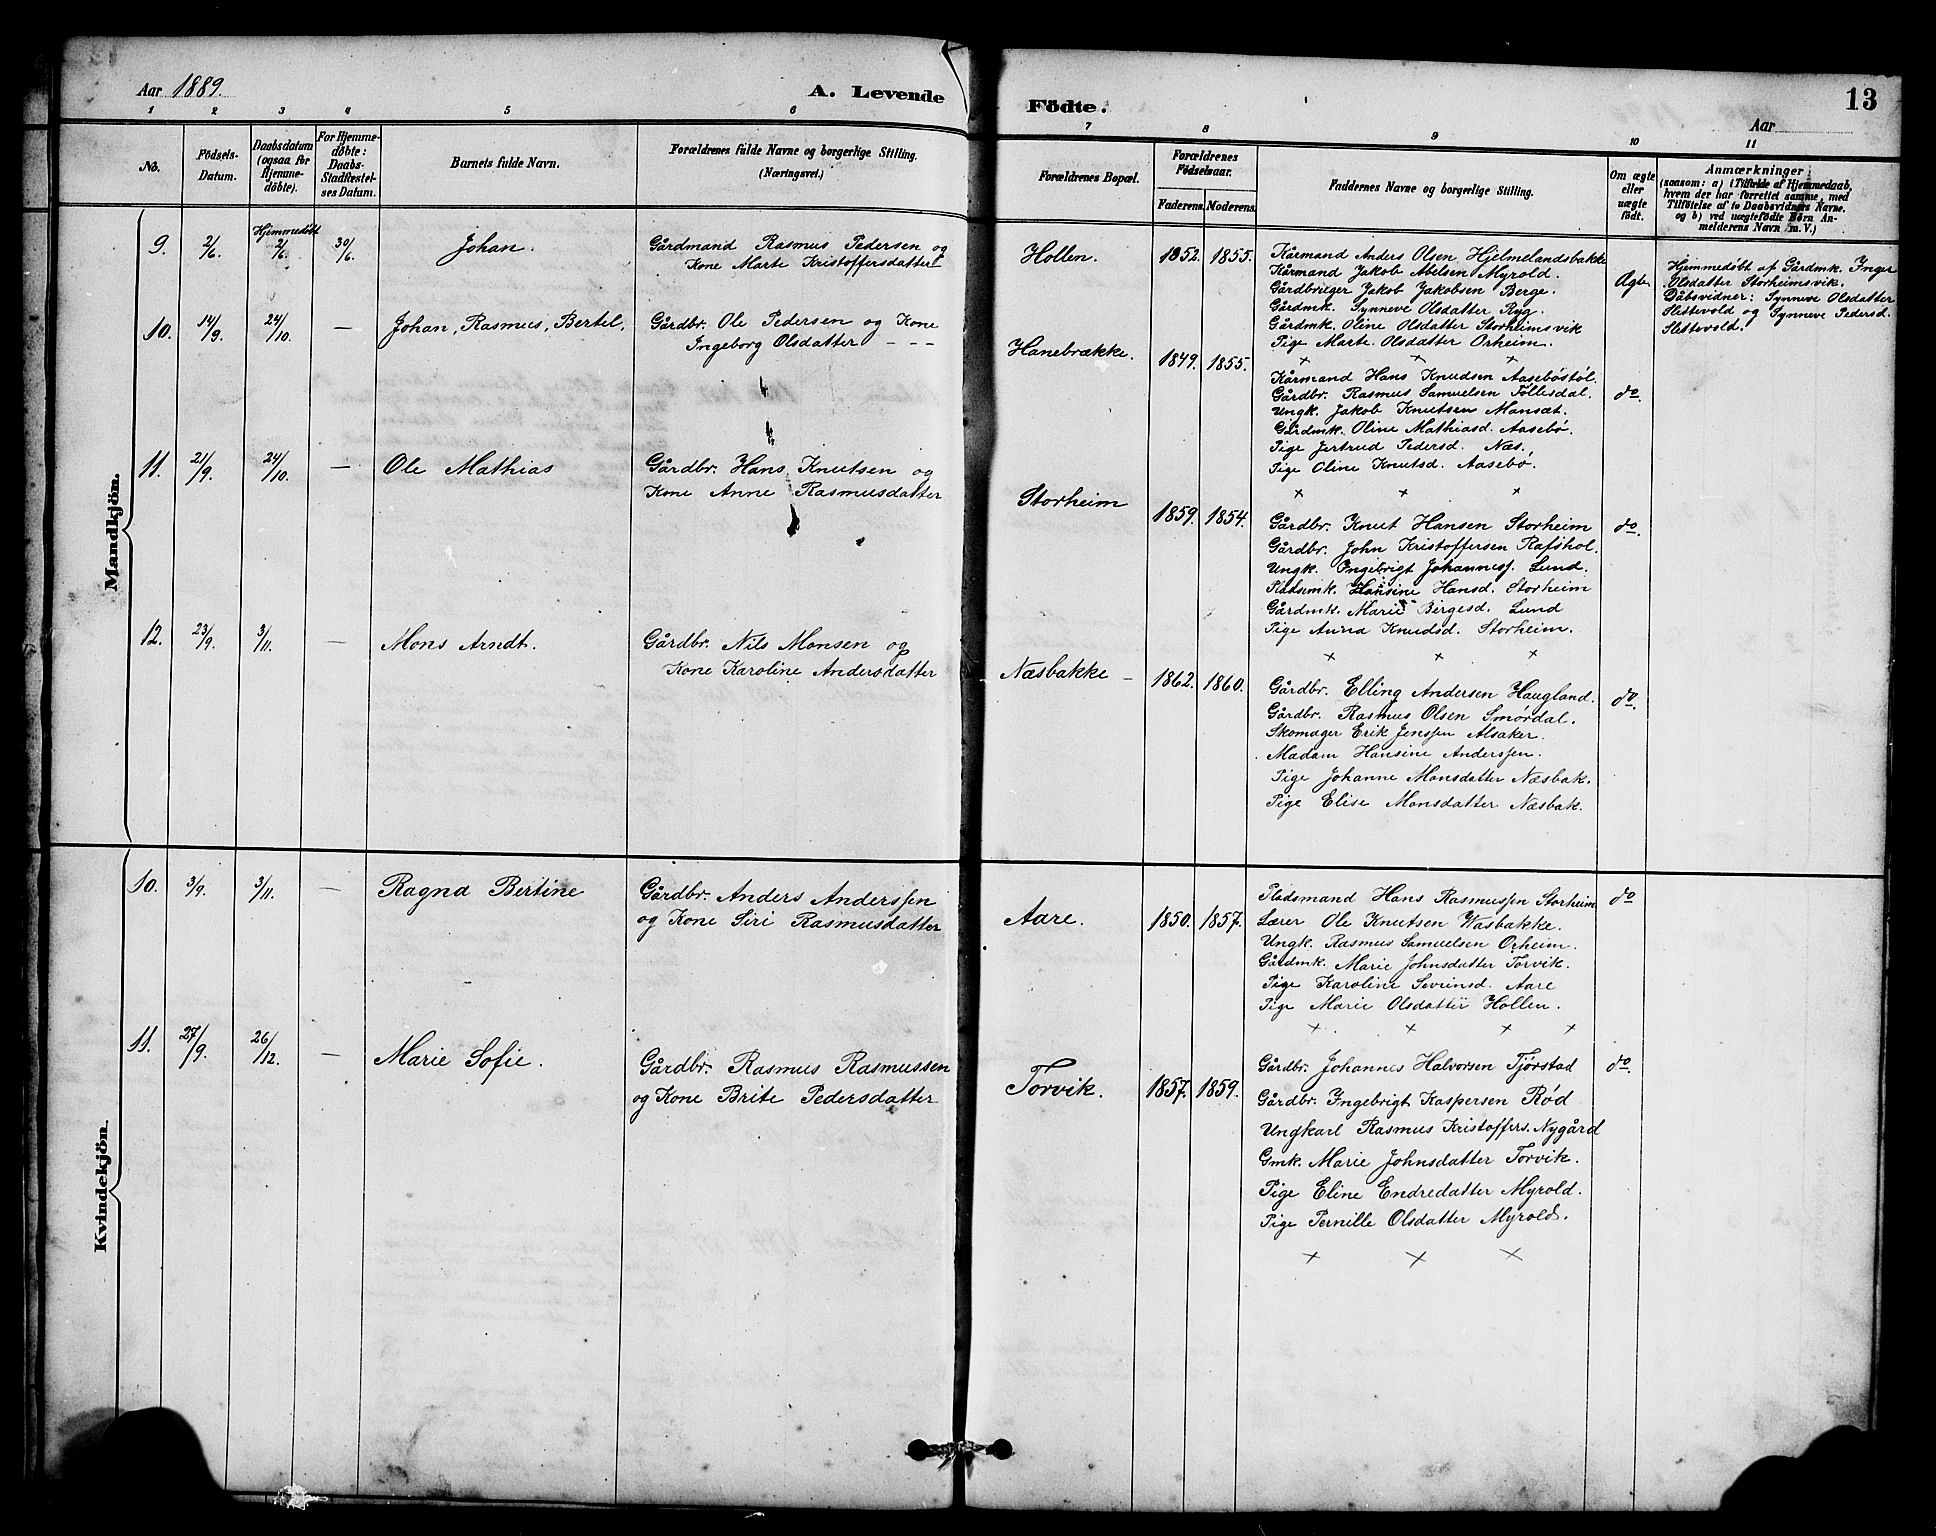 Aar 1889.
A. Levende
1 2 3 4 5 6
No.
Födsels-Datum.
Daabsdatum (ogsaa for Hjemme-döbte).
For Hjemme-döbte: Daabs-Stadfæstel-ses Datum.
Barnets fulde Navn.
Forældrenes fulde Navne og borgerlige Stilling.
(Næringsvei.)
Mandkjön.
9. 2/6. Hjemmedøbt 2/6. 30/6. Johan. Gårdmand Rasmus Pedersen og
Kone Marte Kristoffersdatter
10. 14/9. 24/10. — Johan, Rasmus, Bertel. Gårdbr. Ole Pedersen og Kone
Ingeborg Olsdatter – – –
11. 21/9. 24/10. — Ole Mathias Gårdbr. Hans Knutsen og
Kone Anne Rasmusdatter
12. 23/9. 3/11. — Mons Arndt. Gårdbr. Nils Monsen og
Kone Karoline Andersdatter
Kvindekjön.
10. 3/9. 3/11. — Ragna Bertine Gårdbr. Anders Anderssen
og Kone Siri Rasmusdatter
11. 27/9. 26/12. — Marie Sofie. Gårdbr. Rasmus Rasmussen
og Kone Brite Pedersdatter
Födte.
13
Aar
7 8 9 10 11
Forældrenes Bopæl.
Forældrenes Födselsaar.
Faderens. Moderens.
Faddernes Navne og borgerlige Stilling.
Om ægte eller uægte födt.
Anmærkninger
(saasom: a) i Tilfælde af Hjemmedaab,
hvem der har forrettet samme, med
Tilföielse af to Daabsvidners Navne.
og b) ved uægtefödte Börn An-
melderens Navn m. V.)
Hollen. 1852. 1855.
Kårmand Anders Olsen Hjelmelandsbakke
Kårmand Jakob Abelsen Myrold.
Gårdbruger Jakob Jakobsen Berge.
Gårdmk. Synneve Olsdatter Ryg.
Gårdmk. Oline Olsdatter Storheimsvik
Pige Marte Olsdatter Orheim.
Ægte
Hjemmedøbt af Gårdmk. Inger
Olsdatter Storheimsvik.
Dåbsvidner: Synneve Olsdatter
Slettevold og Synneve Pedersd.
Slettevold.
× × ×
Hanebrække. 1849. 1855.
Kårmand Hans Knudsen Aasebøstøl.
Gårdbr. Rasmus Samuelsen Follesdal.
Ungk. Jakob Knutsen Monsæt.
Gårdmk. Oline Mathiasd. Aasebø.
Pige Jertrud Pedersd. Næs.
Pige Oline Knutsd. Aasebø.
do.
× × ×
Storheim 1859. 1854.
Gårdbr. Knut Hansen Storheim
Gårdbr. John Kristoffersen Rafshol.
Ungk. Ingebrigt Johanness. Lund.
Pladsemk. Hansine Hansd. Storheim
Gårdmk. Marie Birgesd. Lund
Pige Anna Knudsd. Storheim.
do.
× × ×
Næsbakke – 1862. 1860.
Gårdbr. Elling Andersen Haugland.
Gårdbr. Rasmus Olsen Smørdal.
Skomager Erik Jenssen Alsaker.
Madam Hansine Anderssen.
Pige Johanne Monsdatter Næsbak.
Pige Elise Monsdatter Næsbak.
do.
Aare. 1850. 1857.
Pladsmand Hans Rasmussen Storheim
Lærer Ole Knutsen Wasbakke.
Ungk. Rasmus Samuelsen Orheim.
Gårdmk. Marie Johnsdatter Torvik.
Pige Karoline Sevrinsd. Aare
Pige Marie Olsdatter Hollen.
do
× × × ×
Torvik. 1857. 1859.
Gårdbr. Johannes Halvorsen Tjørstad
Gårdbr. Ingebrigt Kaspersen Rød
Ungkarl Rasmus Kristoffers. Nygård
Gmk. Marie Johnsdatter Torvik.
Pige Eline Endredatter Myrold.
Pige Pernille Olsdatter Myrold.
do.
× × ×